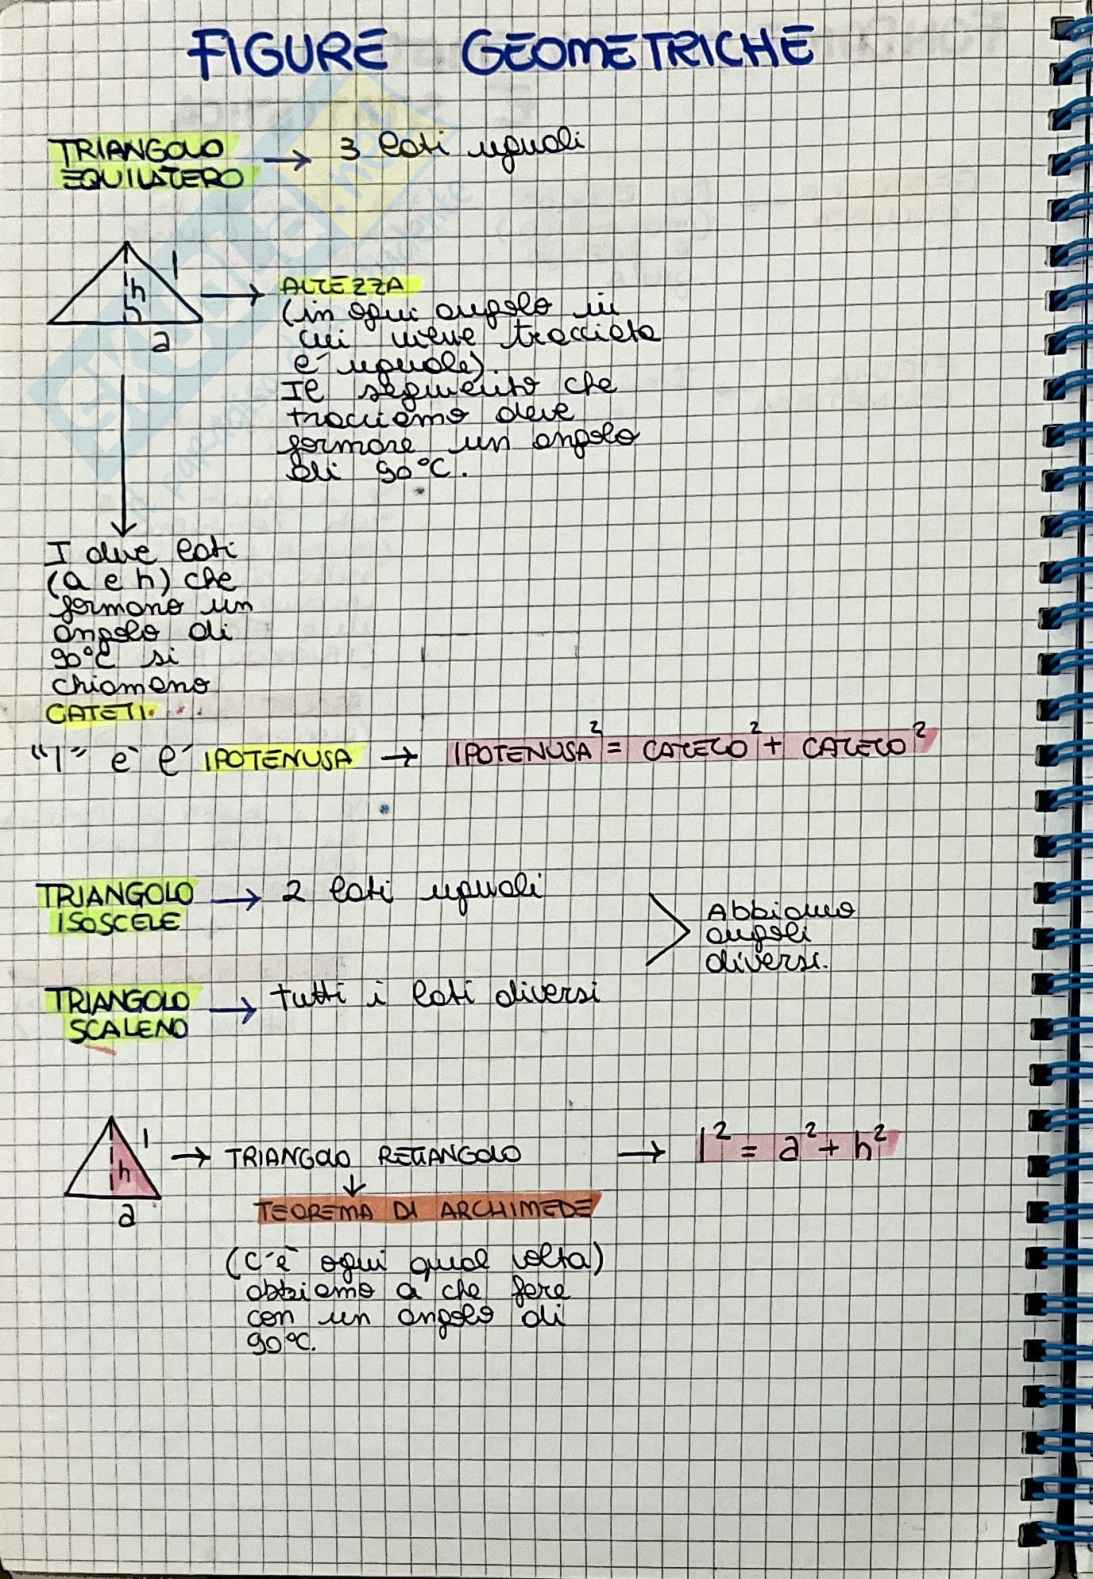 FIGURE GEOMETRICHE
TRIANGOLO → 3 lati uguali
EQUILATERO
l
h
a
→ ALTEZZA
(in ogni angolo in
cui viene tracciata
é uguale).
Il segmento che
tracciamo deve
formare un angolo
di 90°C.
I due lati
(a e h) che
formano un
angolo di
90°C si
chiamano
CATETI.
"l" e' l' IPOTENUSA → IPOTENUSA² = CATETO² + CATETO²
TRIANGOLO → 2 lati uguali
ISOSCELE
Abbiamo
angoli
diversi.
TRIANGOLO → tutti i lati diversi
SCALENO
l
h
a
→ TRIANGOLO RETTANGOLO → l² = a² + h²
TEOREMA DI ARCHIMEDE
(c'è ogni qual volta)
abbiamo a che fare
con un angolo di
90°C.